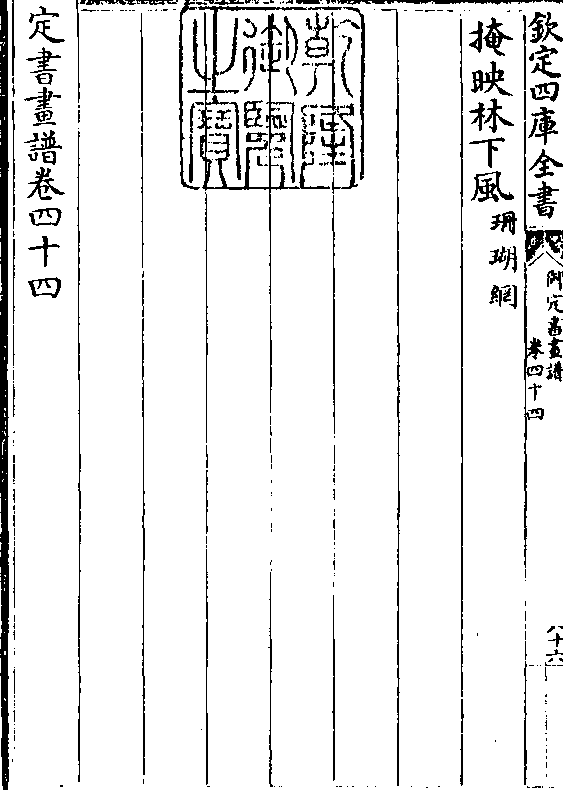 欽定四庫全書
御定書畫譜
卷四十四
八十六
掩映林下風珊瑚網
乾隆御覽之寶
定書畫譜卷四十四